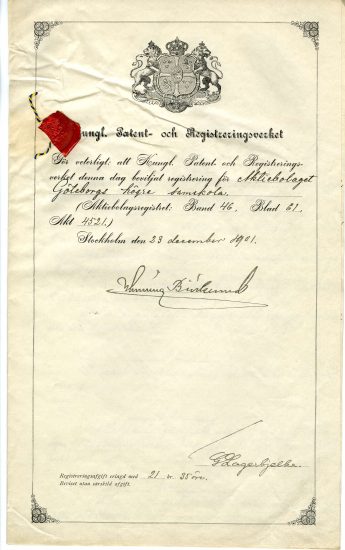 Kungl. Patent- och Registreringsverket
Gör veterligt: att Kungl. Patent och Registrerings-
verket denna dag beviljat registrering för Aktiebolaget
Göteborgs högre samskola.
(Aktiebolagsregistret: Band 46, Blad 61,
Akt 4521.)
Stockholm den 23 december 1901.
G Lagerbjelke.
Registreringsafgift erlagd med 21 kr. 35 öre.
Beviset utan särskild afgift.